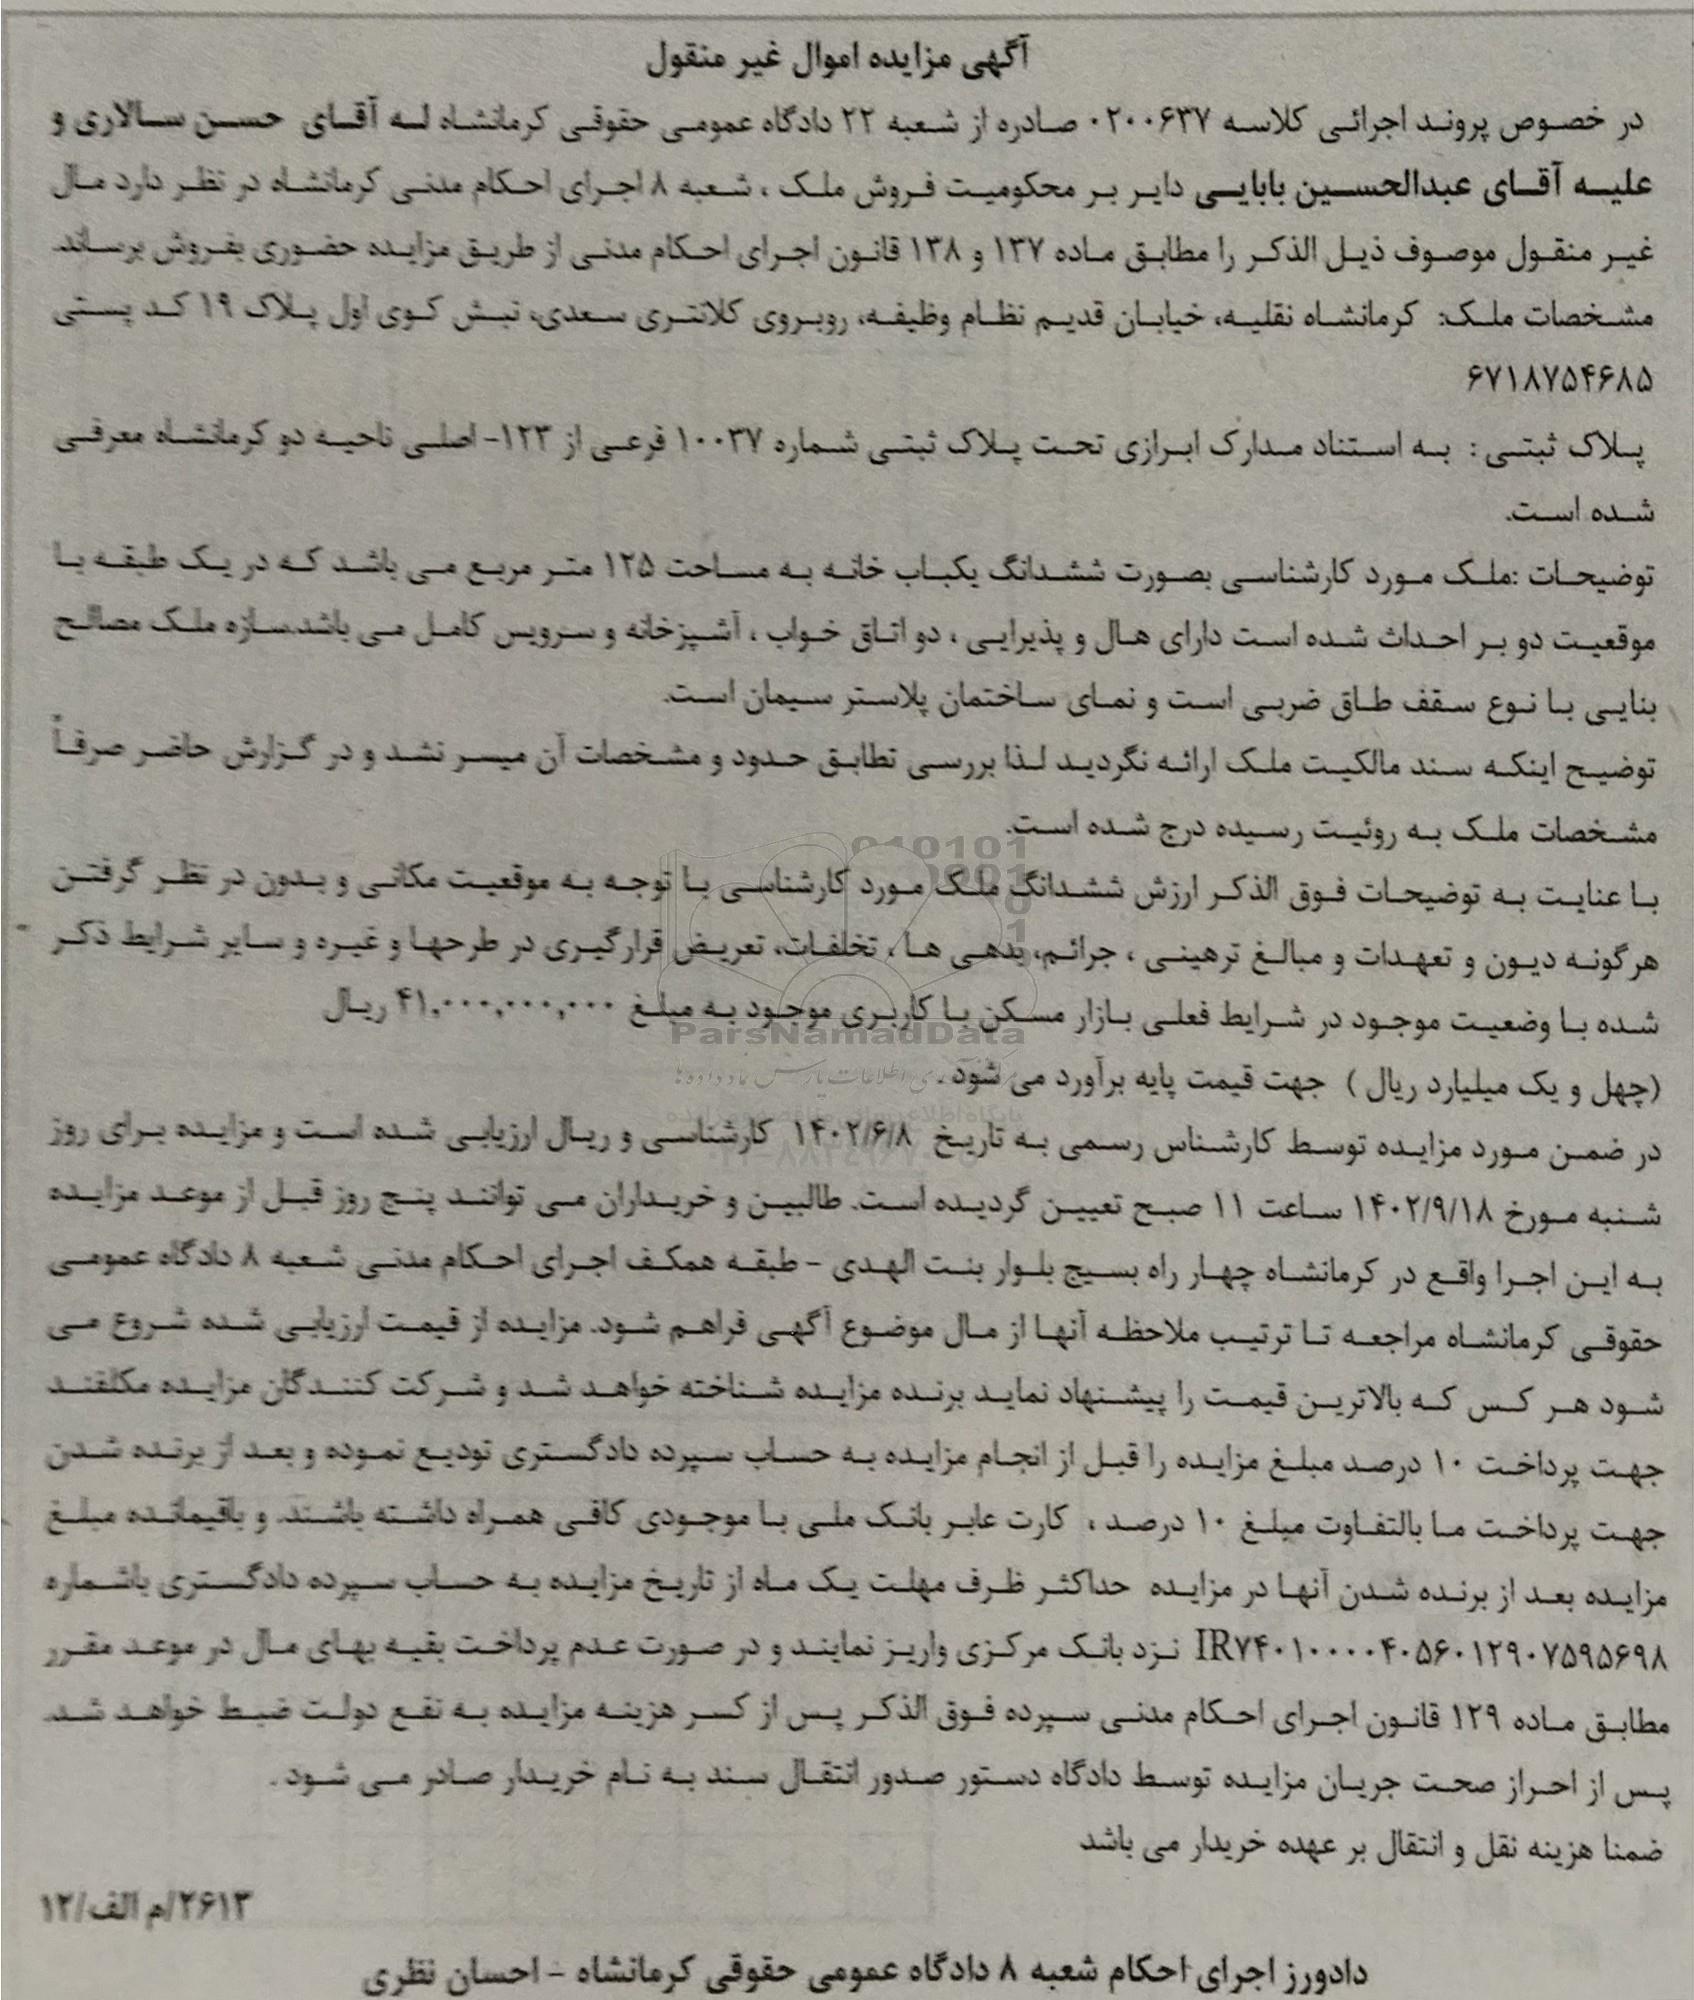 آگهی مزایده اموال غیر منقول
در خصوص پروند اجرائی کلاسه ۰۲۰۰۶۳۷ صادره از شعبه ۲۲ دادگاه عمومی حقوقی کرمانشاه له آقای حسن سالاری و
علیه آقای عبدالحسین بابایی دایر بر محکومیت فروش ملک ، شعبه ۸ اجرای احکام مدنی کرمانشاه در نظر دارد مال
غیر منقول موصوف ذیل الذکر را مطابق ماده ۱۳۷ و ۱۳۸ قانون اجرای احکام مدنی از طریق مزایده حضوری بفروش برساند.
مشخصات ملک: کرمانشاه نقلیه، خیابان قدیم نظام وظیفه، روبروی کلانتری سعدی، نبش کوی اول پلاک ۱۹ کد پستی
۶۷۱۸۷۵۴۶۸۵
پلاک ثبتی : به استناد مدارک ابرازی تحت پلاک ثبتی شماره ۱۰۰۳۷ فرعی از ۱۲۳- اصلی ناحیه دو کرمانشاه معرفی
شده است.
توضیحات :ملک مورد کارشناسی بصورت ششدانگ یکباب خانه به مساحت ۱۲۵ متر مربع می باشد که در یک طبقه با
موقعیت دو بر احداث شده است دارای هال و پذیرایی ، دو اتاق خواب ، آشپزخانه و سرویس کامل می باشد.سازه ملک مصالح
بنایی با نوع سقف طاق ضربی است و نمای ساختمان پلاستر سیمان است.
توضیح اینکه سند مالکیت ملک ارائه نگردید لذا بررسی تطابق حدود و مشخصات آن میسر نشد و در گزارش حاضر صرفاً
مشخصات ملک به روئیت رسیده درج شده است.
با عنایت به توضیحات فوق الذکر ارزش ششدانگ ملک مورد کارشناسی با توجه به موقعیت مکانی و بدون در نظر گرفتن
هرگونه دیون و تعهدات و مبالغ ترهینی ، جرائم، بدهی ها ، تخلفات، تعریض قرارگیری در طرحها و غیره و سایر شرایط ذکر
شده با وضعیت موجود در شرایط فعلی بازار مسکن با کاربری موجود به مبلغ ۴۱,۰۰۰,۰۰۰,۰۰۰ ریال
ParsNamadData
(چهل و یک میلیارد ریال ) جهت قیمت پایه برآورد می شود .
در ضمن مورد مزایده توسط کارشناس رسمی به تاریخ ۱۴۰۲/۶/۸ کارشناسی و ریال ارزیابی شده است و مزایده برای روز
شنبه مورخ ۱۴۰۲/۹/۱۸ ساعت ۱۱ صبح تعیین گردیده است. طالبین و خریداران می توانند پنج روز قبل از موعد مزایده
به این اجرا واقع در کرمانشاه چهار راه بسیج بلوار بنت الهدی - طبقه همکف اجرای احکام مدنی شعبه ۸ دادگاه عمومی
حقوقی کرمانشاه مراجعه تا ترتیب ملاحظه آنها از مال موضوع آگهی فراهم شود. مزایده از قیمت ارزیابی شده شروع می
شود هر کس که بالاترین قیمت را پیشنهاد نماید برنده مزایده شناخته خواهد شد و شرکت کنندگان مزایده مکلفند
جهت پرداخت ۱۰ درصد مبلغ مزایده را قبل از انجام مزایده به حساب سپرده دادگستری تودیع نموده و بعد از برنده شدن
جهت پرداخت ما بالتفاوت مبلغ ۱۰ درصد ، کارت عابر بانک ملی با موجودی کافی همراه داشته باشند. و باقیمانده مبلغ
مزایده بعد از برنده شدن آنها در مزایده حداکثر ظرف مهلت یک ماه از تاریخ مزایده به حساب سپرده دادگستری باشماره
IR۷۴۰۱۰۰۰۰۴۰۵۶۰۱۲۹۰۷۵۹۵۶۹۸ نزد بانک مرکزی واریز نمایند و در صورت عدم پرداخت بقیه بهای مال در موعد مقرر
مطابق ماده ۱۲۹ قانون اجرای احکام مدنی سپرده فوق الذکر پس از کسر هزینه مزایده به نفع دولت ضبط خواهد شد.
پس از احراز صحت جریان مزایده توسط دادگاه دستور صدور انتقال سند به نام خریدار صادر می شود .
ضمنا هزینه نقل و انتقال بر عهده خریدار می باشد
۲۶۱۳/م الف/۱۲
دادورز اجرای احکام شعبه ۸ دادگاه عمومی حقوقی کرمانشاه - احسان نظری